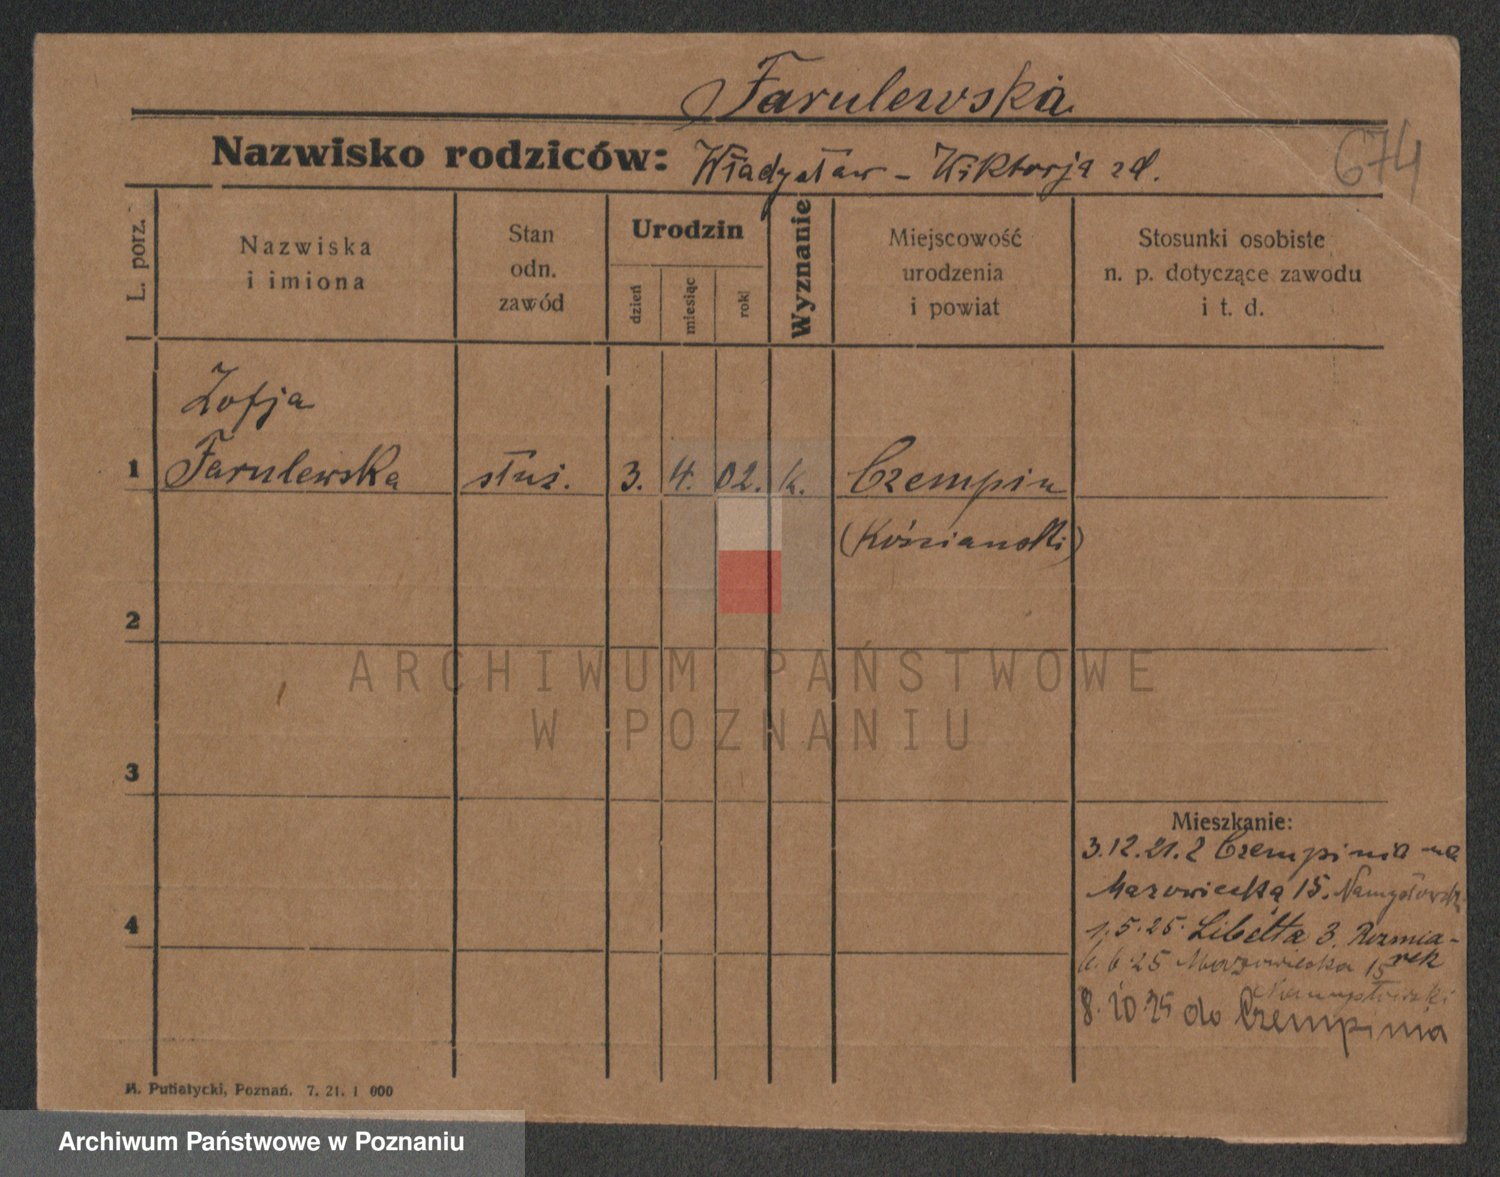 Farulewska
Nazwisko rodziców: Władysław - Wiktorja zd.
674
L. porz.
Nazwiska
i imiona
Stan
odn.
zawód
Urodzin
dzień
miesiąc
rok
Wyznanie
Miejscowość
urodzenia
i powiat
Stosunki osobiste
n. p. dotyczące zawodu
i t. d.
Zofja
1 Farulewska służ. 3. 4. 02. k. Czempin
(Kościański)
2
ARCHIWUM PAŃSTWOWE
W POZNANIU
3
Mieszkanie:
3.12.21. z Czempinia na
Mazowiecką 15.
4
1.5.25. Libelta 3. Rozmia-
rek
6.6.25 Mazowiecka 15
Namysłowski
8.10.25 do Czempinia
Putiatycki, Poznań. 7. 21. 1 000
Archiwum Państwowe w Poznaniu